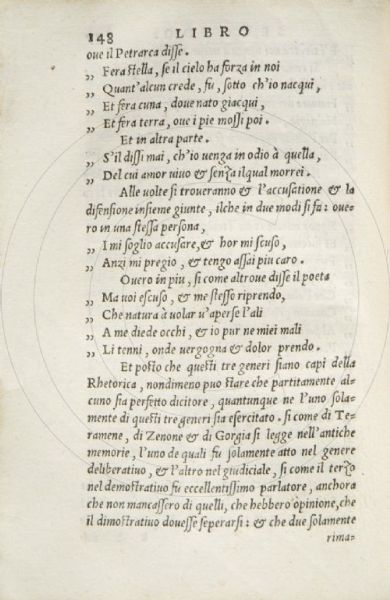 148 LIBRO
oue il Petrarca disse.
„ Fera stella, se il cielo ha forza in noi
„ Quant'alcun crede, fu, sotto ch'io nacqui,
„ Et fera cuna, doue nato giacqui,
„ Et fera terra, oue i pie mossi poi.
Et in altra parte.
„ S'il dissi mai, ch'io uenga in odio à quella,
„ Del cui amor uiuo & senza ilqual morrei.
Alle uolte si troueranno & l'accusatione & la
difensione insieme giunte, ilche in due modi si fa: oue-
ro in una stessa persona,
„ I mi soglio accusare, & hor mi scuso,
„ Anzi mi pregio, & tengo assai piu caro.
Ouero in piu, si come altroue disse il poeta
„ Ma uoi escuso, & me stesso riprendo,
„ Che natura à uolar u'aperse l'ali
„ A me diede occhi, & io pur ne miei mali
„ Li tenni, onde uergogna & dolor prendo.
Et posto che questi tre generi siano capi della
Rhetorica, nondimeno puo stare che partitamente al-
cuno sia perfetto dicitore, quantunque ne l'uno sola-
mente di questi tre generi sia esercitato. si come di Te-
ramene, di Zenone & di Gorgia si legge nell'antiche
memorie, l'uno de quali fu solamente atto nel genere
deliberatiuo, & l'altro nel giudiciale, si come il terzo
nel demostratiuo fu eccellentissimo parlatore, anchora
che non mancassero di quelli, che hebbero opinione, che
il dimostratiuo douesse seperarsi: & che due solamente
rima-